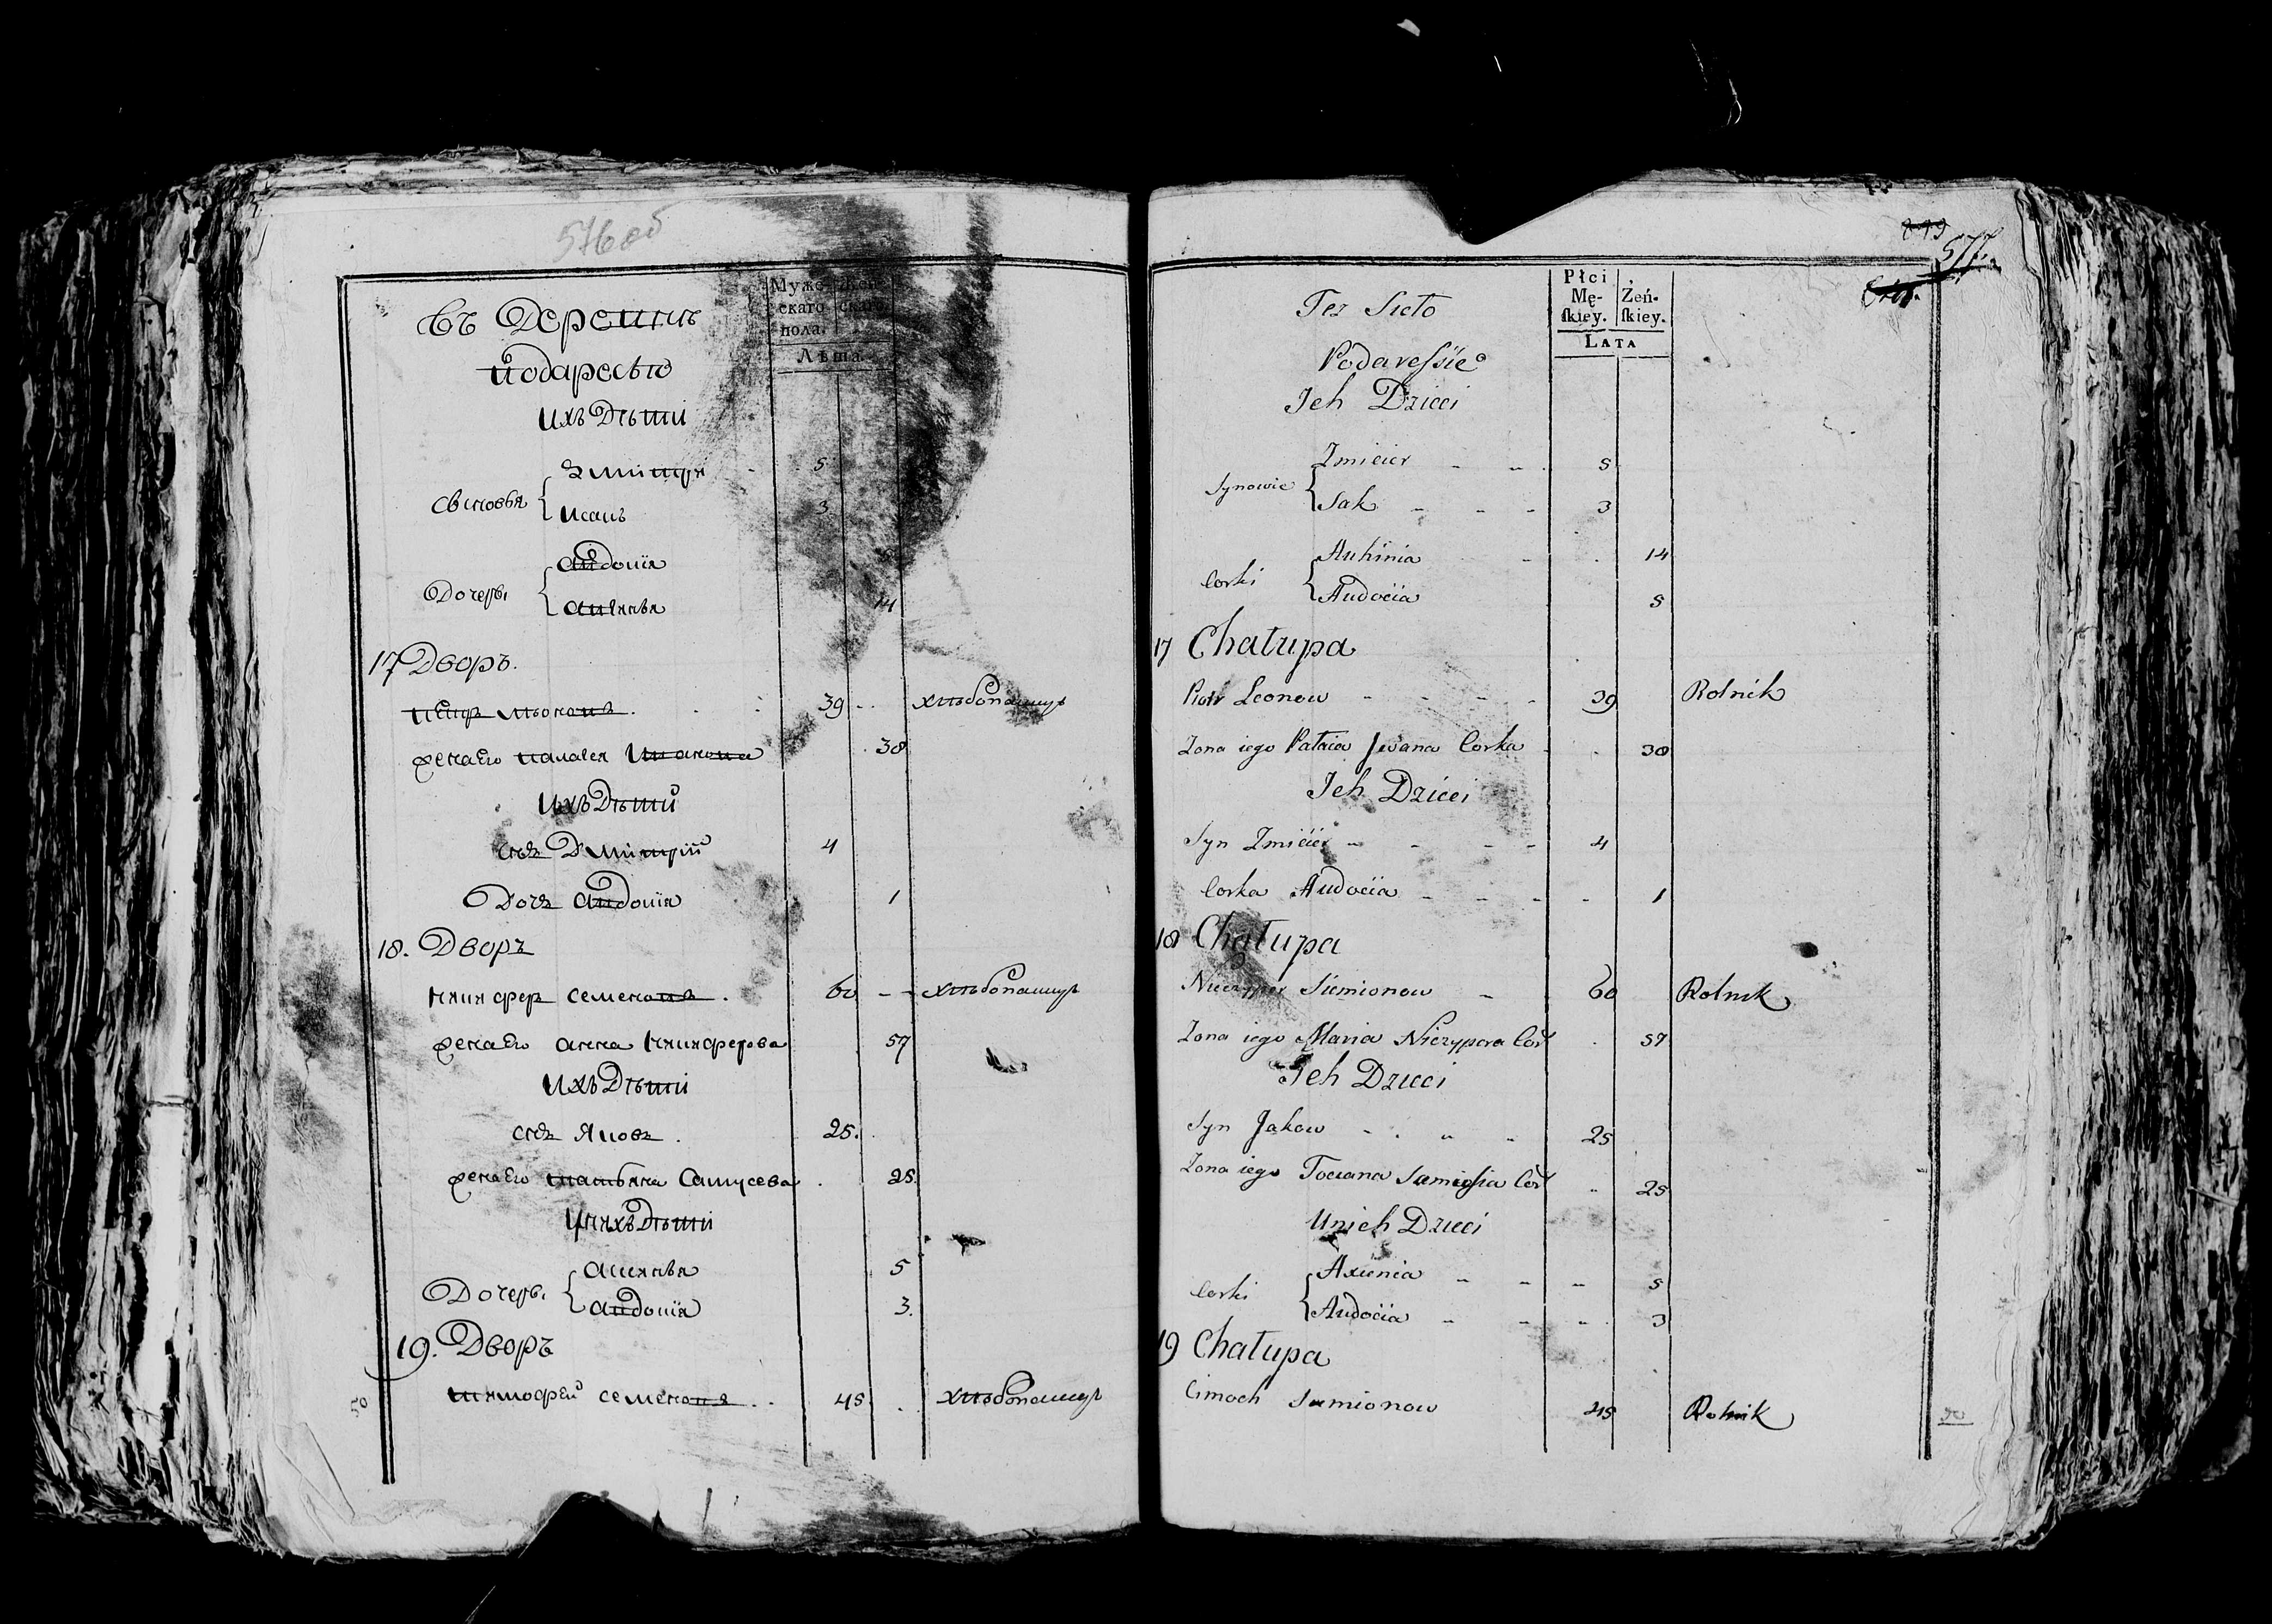 576 об
Муже-
скаго
пола.
Жен-
скаго
Лѣта
въ Деревнѣ
Подаресью
Ихъ Дѣти
Сыновья
Змитръ 5
Исакъ 3
Дочеры
Авдоція
14
17 Дворъ.
Петръ Леоновъ. 39 хлѣбопашцъ
жена Его Палагея Иванова 30
Ихъ Дѣти
сынъ Дмитрій 4
Дочь Авдоція 1
18. Дворъ
Ничиферъ Семеновъ. 60 хлѣбопашцъ
жена Его Анна Ничиферова 57
Ихъ Дѣти
сынъ Яковъ. 25.
жена Его Татьяна Самусева 25.
У нихъ Дѣти
Дочеры
Аксинья 5
Авдоція 3.
19. Дворъ
Тимофей Семеновъ 45 хлѣбопашцъ
577.
Płci
Mę-
ſkiey.
Żeń-
ſkiey.
LATA
Tez Sieło
Podaresſie
Jch Dzieci
Synowie
Zmicier 5
Sak 3
Corki
Auhinia 14
Audocia 5
17 Chałupa
Piotr Leonow 39 Rolnik
Zona iego Pałaia Jwana Corka 30
Jch Dzieci
Syn Zmicier 4
Corka Audocia 1
18 Chałupa
Niczyper Siemionow 60 Rolnik
Zona iego Maria Niczypora Cor 57
Jch Dzieci
Syn Jakow 25
Zona iego Tociana Samusia Cor 25
Unich Dzieci
Corki
Axienia 5
Audocia 3
19 Chałupa
Cimoch Siemionow 45 Rolnik